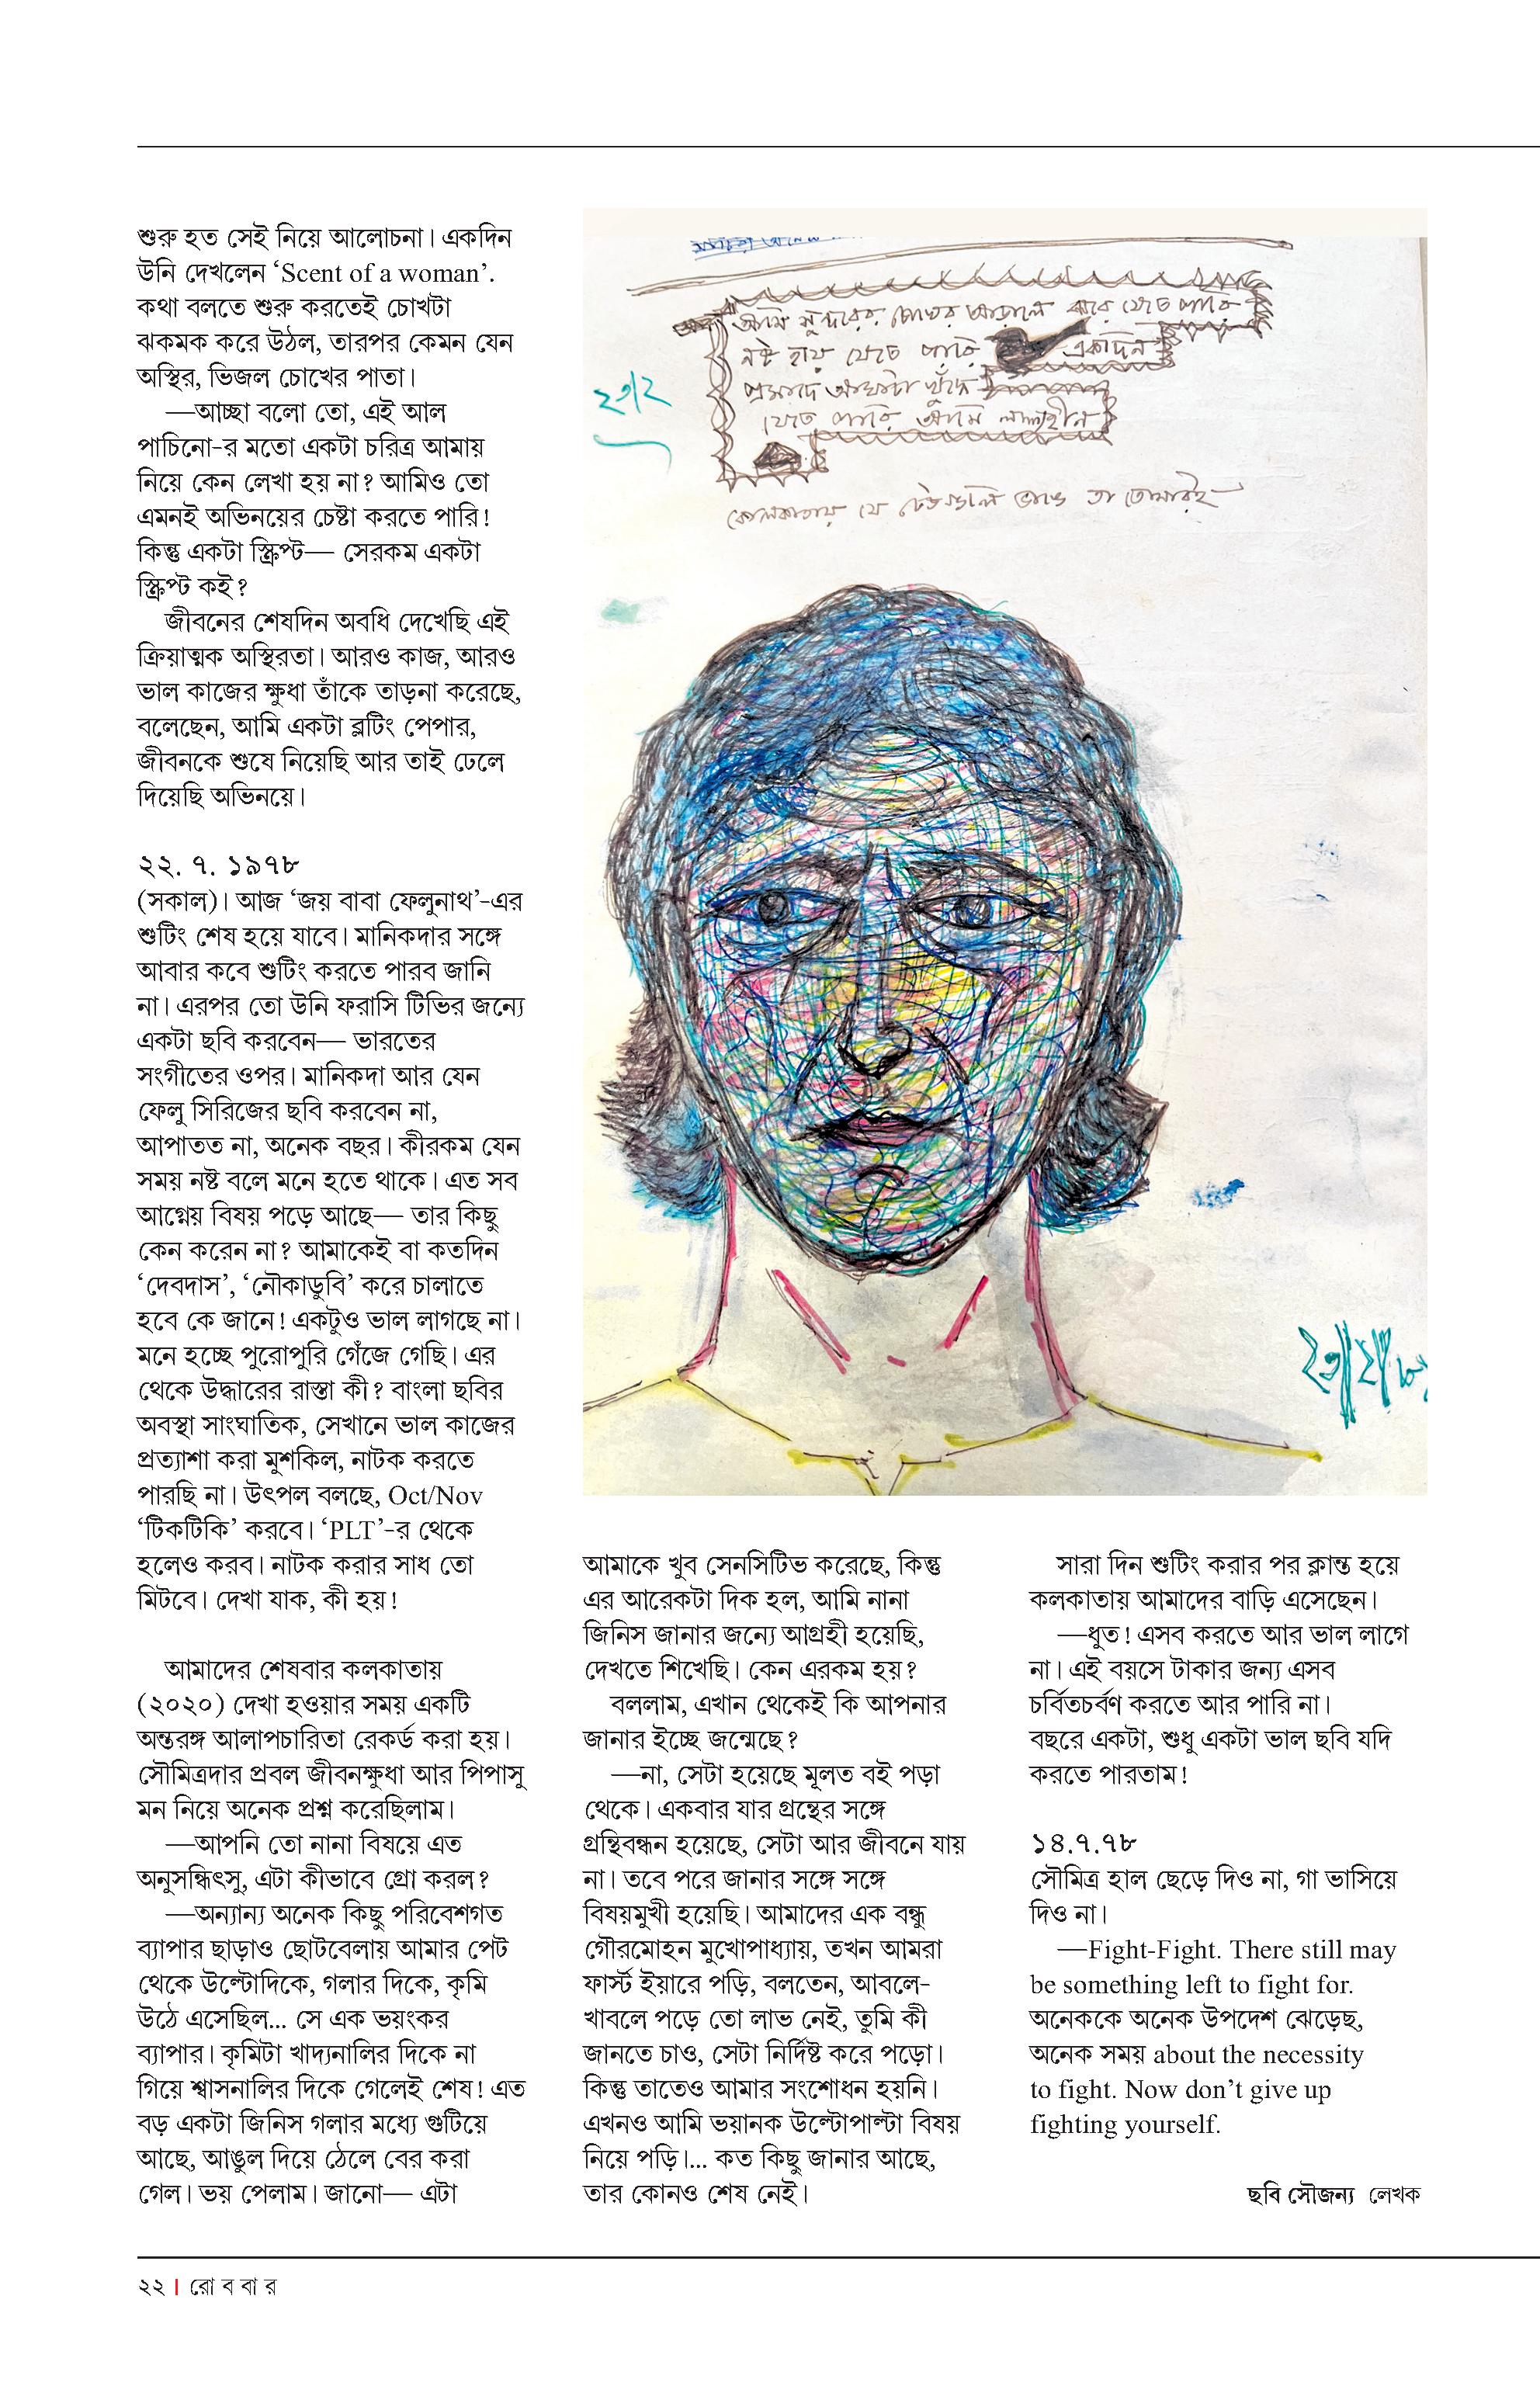 শুরু হত সেই নিয়ে আলোচনা। একদিন
উনি দেখলেন ‘Scent of a woman’.
কথা বলতে শুরু করতেই চোখটা
ঝকমক করে উঠল, তারপর কেমন যেন
অস্থির, ভিজল চোখের পাতা।
—আচ্ছা বলো তো, এই আল
পাচিনো-র মতো একটা চরিত্র আমায়
নিয়ে কেন লেখা হয় না? আমিও তো
এমনই অভিনয়ের চেষ্টা করতে পারি!
কিন্তু একটা স্ক্রিপ্ট— সেরকম একটা
স্ক্রিপ্ট কই?
জীবনের শেষদিন অবধি দেখেছি এই
ক্রিয়াত্মক অস্থিরতা। আরও কাজ, আরও
ভাল কাজের ক্ষুধা তাঁকে তাড়না করেছে,
বলেছেন, আমি একটা ব্লটিং পেপার,
জীবনকে শুষে নিয়েছি আর তাই ঢেলে
দিয়েছি অভিনয়ে।
২২. ৭. ১৯৭৮
(সকাল)। আজ ‘জয় বাবা ফেলুনাথ’-এর
শুটিং শেষ হয়ে যাবে। মানিকদার সঙ্গে
আবার কবে শুটিং করতে পারব জানি
না। এরপর তো উনি ফরাসি টিভির জন্যে
একটা ছবি করবেন— ভারতের
সংগীতের ওপর। মানিকদা আর যেন
ফেলু সিরিজের ছবি করবেন না,
আপাতত না, অনেক বছর। কীরকম যেন
সময় নষ্ট বলে মনে হতে থাকে। এত সব
আগ্নেয় বিষয় পড়ে আছে— তার কিছু
কেন করেন না? আমাকেই বা কতদিন
‘দেবদাস’, ‘নৌকাডুবি’ করে চালাতে
হবে কে জানে! একটুও ভাল লাগছে না।
মনে হচ্ছে পুরোপুরি গেঁজে গেছি। এর
থেকে উদ্ধারের রাস্তা কী? বাংলা ছবির
অবস্থা সাংঘাতিক, সেখানে ভাল কাজের
প্রত্যাশা করা মুশকিল, নাটক করতে
পারছি না। উৎপল বলছে, Oct/Nov
‘টিকটিকি’ করবে। ‘PLT’-র থেকে
হলেও করব। নাটক করার সাধ তো
মিটবে। দেখা যাক, কী হয়!
আমাদের শেষবার কলকাতায়
(২০২০) দেখা হওয়ার সময় একটি
অন্তরঙ্গ আলাপচারিতা রেকর্ড করা হয়।
সৌমিত্রদার প্রবল জীবনক্ষুধা আর পিপাসু
মন নিয়ে অনেক প্রশ্ন করেছিলাম।
—আপনি তো নানা বিষয়ে এত
অনুসন্ধিৎসু, এটা কীভাবে গ্রো করল?
—অন্যান্য অনেক কিছু পরিবেশগত
ব্যাপার ছাড়াও ছোটবেলায় আমার পেট
থেকে উল্টোদিকে, গলার দিকে, কৃমি
উঠে এসেছিল... সে এক ভয়ংকর
ব্যাপার। কৃমিটা খাদ্যনালির দিকে না
গিয়ে শ্বাসনালির দিকে গেলেই শেষ! এত
বড় একটা জিনিস গলার মধ্যে গুটিয়ে
আছে, আঙুল দিয়ে ঠেলে বের করা
গেল। ভয় পেলাম। জানো— এটা
আমি সুন্দরের চোখের আড়ালে ঝরে যেতে পারি
নষ্ট হয়ে যেতে পারি একদিন
যেতে পারি আমি লক্ষ্যহীন
কোলকাতায় যে ঢেউগুলি ভাঙে তা তোমারই
আমাকে খুব সেনসিটিভ করেছে, কিন্তু
এর আরেকটা দিক হল, আমি নানা
জিনিস জানার জন্যে আগ্রহী হয়েছি,
দেখতে শিখেছি। কেন এরকম হয়?
বললাম, এখান থেকেই কি আপনার
জানার ইচ্ছে জন্মেছে?
—না, সেটা হয়েছে মূলত বই পড়া
থেকে। একবার যার গ্রন্থের সঙ্গে
গ্রন্থিবন্ধন হয়েছে, সেটা আর জীবনে যায়
না। তবে পরে জানার সঙ্গে সঙ্গে
বিষয়মুখী হয়েছি। আমাদের এক বন্ধু
গৌরমোহন মুখোপাধ্যায়, তখন আমরা
ফার্স্ট ইয়ারে পড়ি, বলতেন, আবলে-
খাবলে পড়ে তো লাভ নেই, তুমি কী
জানতে চাও, সেটা নির্দিষ্ট করে পড়ো।
কিন্তু তাতেও আমার সংশোধন হয়নি।
এখনও আমি ভয়ানক উল্টোপাল্টা বিষয়
নিয়ে পড়ি।... কত কিছু জানার আছে,
তার কোনও শেষ নেই।
সারা দিন শুটিং করার পর ক্লান্ত হয়ে
কলকাতায় আমাদের বাড়ি এসেছেন।
—ধুত! এসব করতে আর ভাল লাগে
না। এই বয়সে টাকার জন্য এসব
চর্বিতচর্বণ করতে আর পারি না।
বছরে একটা, শুধু একটা ভাল ছবি যদি
করতে পারতাম!
১৪.৭.৭৮
সৌমিত্র হাল ছেড়ে দিও না, গা ভাসিয়ে
দিও না।
—Fight-Fight. There still may
be something left to fight for.
অনেককে অনেক উপদেশ ঝেড়েছ,
অনেক সময় about the necessity
to fight. Now don’t give up
fighting yourself.
ছবি সৌজন্য লেখক
২২ | রো ব বা র